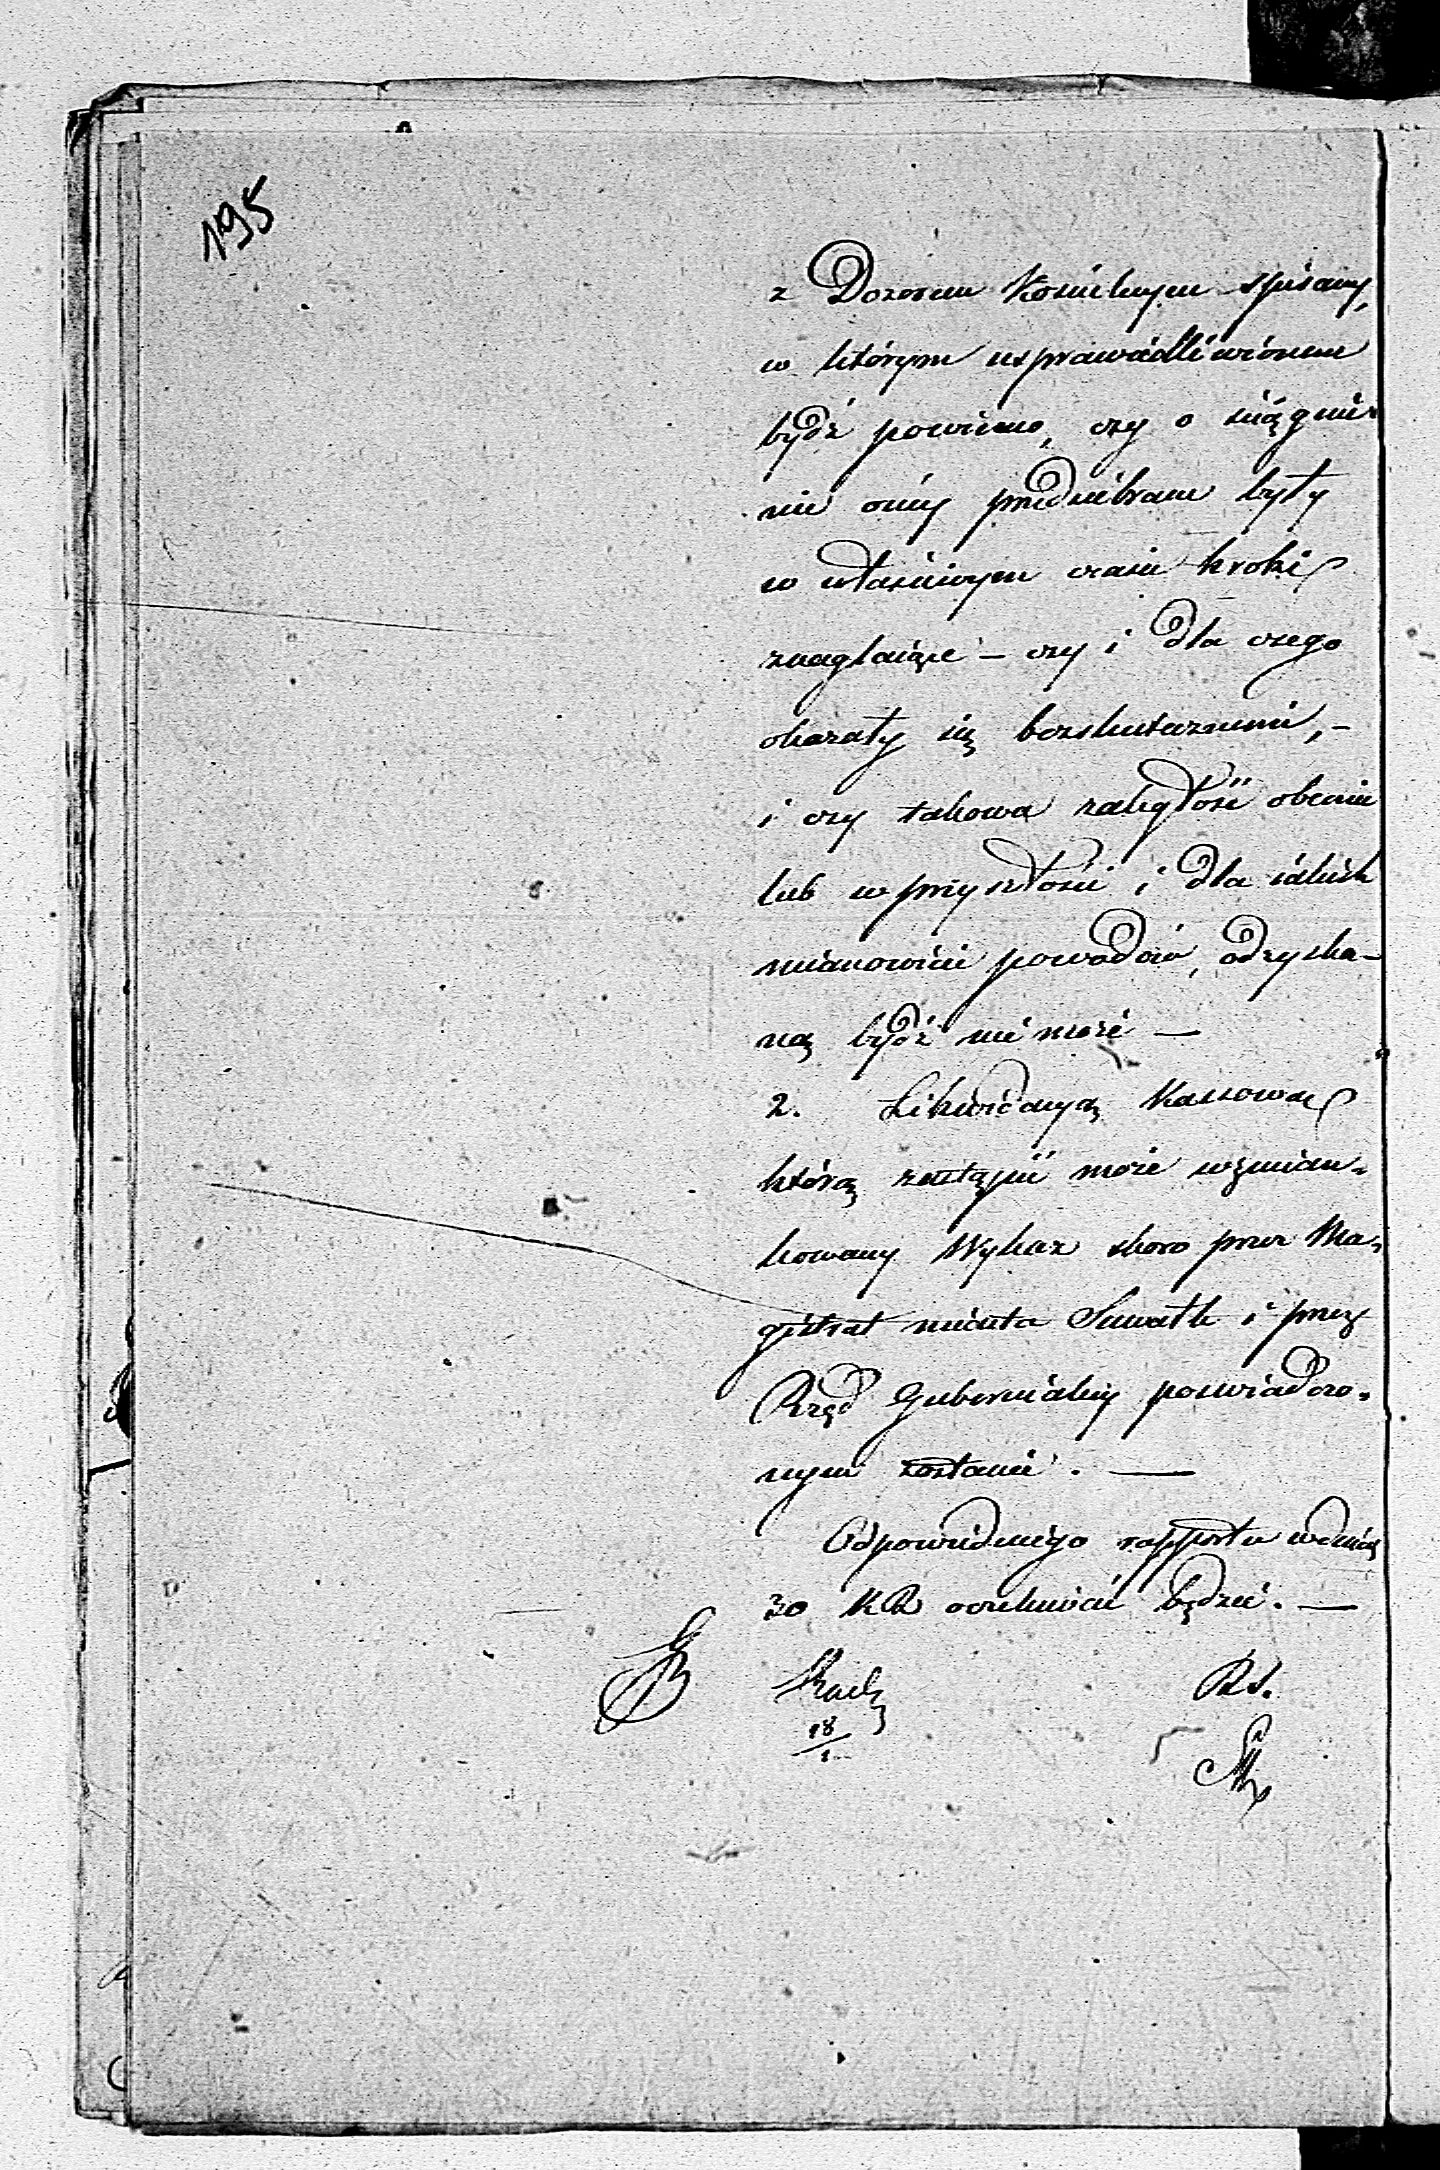 195
z Dozorem Kościelnym spisany,
w którym usprawiedliwionem
bydź powinno, czy o ściągnie-
nie onéy przedsiębrane były
w właściwym czasie kroki
znaglaiące – czy i dla czego
okazały się bezskutecznemi, –
i czy takowa zaległość obecnie
lub w przyszłości i dla iakich
mianowicie powodów, odzyska-
ną bydź nie może —
2. Likwidacyą Kassową
którą zastąpić może wzmian-
kowany Wykaz skoro przez Ma-
gistrat miasta Suwałk i przez
Rząd Gubernialny poswiadczo-
nym zostanie. —
Odpowiedniego rapportu w dniach
30 KR oczekiwać będzie. —
RS.
18